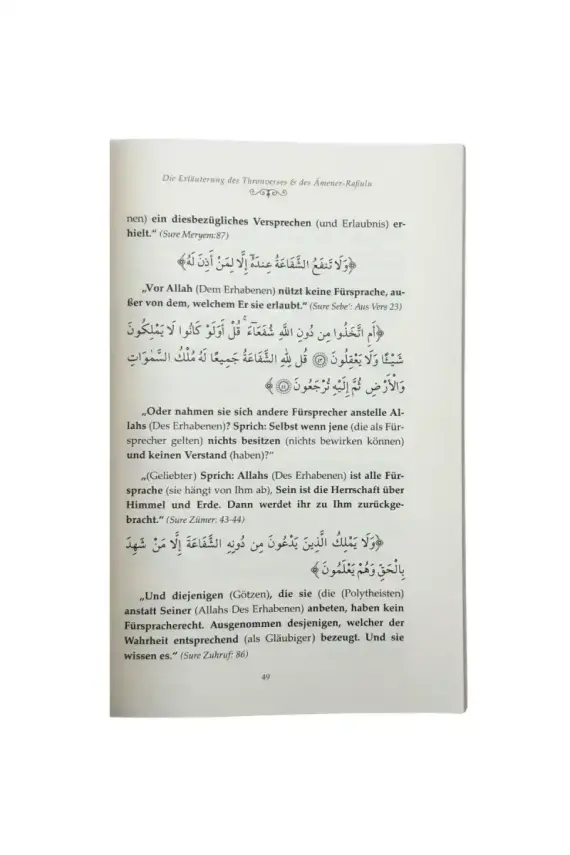 Die Erläuterung des Thronverses & des Âmener-Raßulu
nen) ein diesbezügliches Versprechen (und Erlaubnis) er-
hielt.“ (Sure Meryem:87)
﴿وَلَا تَنفَعُ الشَّفَاعَةُ عِندَهُٓ إِلَّا لِمَنْ أَذِنَ لَهُ﴾
„Vor Allah (Dem Erhabenen) nützt keine Fürsprache, au-
ßer von dem, welchem Er sie erlaubt.“ (Sure Sebe’: Aus Vers 23)
﴿أَمِ اتَّخَذُوا مِن دُونِ اللَّهِ شُفَعَآءَ ۚ قُلْ أَوَلَوْ كَانُوا لَا يَمْلِكُونَ
شَيْئًا وَلَا يَعْقِلُونَ ۝٤٣ قُل لِلَّهِ الشَّفَاعَةُ جَمِيعًا لَهُ مُلْكُ السَّمٰوَاتِ
وَالْأَرْضِ ثُمَّ إِلَيْهِ تُرْجَعُونَ ۝٤٤ ﴾
„Oder nahmen sie sich andere Fürsprecher anstelle Al-
lahs (Des Erhabenen)? Sprich: Selbst wenn jene (die als Für-
sprecher gelten) nichts besitzen (nichts bewirken können)
und keinen Verstand (haben)?“
„(Geliebter) Sprich: Allahs (Des Erhabenen) ist alle Für-
sprache (sie hängt von Ihm ab), Sein ist die Herrschaft über
Himmel und Erde. Dann werdet ihr zu Ihm zurückge-
bracht.“ (Sure Zümer: 43-44)
﴿وَلَا يَمْلِكُ الَّذِينَ يَدْعُونَ مِن دُونِهِ الشَّفَاعَةَ إِلَّا مَنْ شَهِدَ
بِالْحَقِّ وَهُمْ يَعْلَمُونَ ﴾
„Und diejenigen (Götzen), die sie (die (Polytheisten)
anstatt Seiner (Allahs Des Erhabenen) anbeten, haben kein
Fürspracherecht. Ausgenommen desjenigen, welcher der
Wahrheit entsprechend (als Gläubiger) bezeugt. Und sie
wissen es.“ (Sure Zuhruf: 86)
49